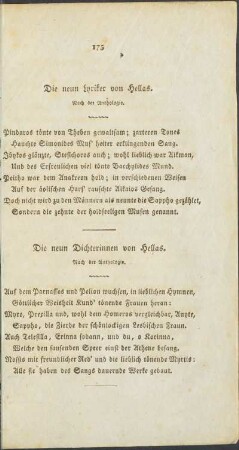 175
Die neun Lyriker von Hellas.
Nach der Anthologie.
Pindaros tönte von Theben gewaltsam; zarteren Tones
Hauchte Simonides Mus' heiter erklingenden Sang.
Ibykos glänzte, Stesichoros auch; wohl lieblich war Alkman,
Und des Erfreulichen viel tönte Bacchylides Mund.
Peitho war dem Anakreon hold; in verschiedenen Weisen
Auf der äolischen Harf' rauschte Alkäos Gesang.
Doch nicht wird zu den Männern als neunte die Sappho gezählet,
Sondern die zehnte der holdseeligen Musen genannt.
Die neun Dichterinnen von Hellas.
Nach der Anthologie.
Auf dem Parnassos und Pelion wuchsen, in lieblichen Hymnen,
Göttlicher Weisheit Kund' tönende Frauen heran:
Myro, Prexilla und, wohl dem Homerus vergleichbar, Anyte,
Sappho, die Zierde der schönlockigen Lesbischen Fraun.
Auch Telesilla, Erinna sodann, und du, o Karinna,
Welche den sausenden Speer einst der Athene besang.
Nossis mit freundlicher Red' und die lieblich tönende Myrtis:
Alle sie haben des Sangs dauernde Werke gebaut.